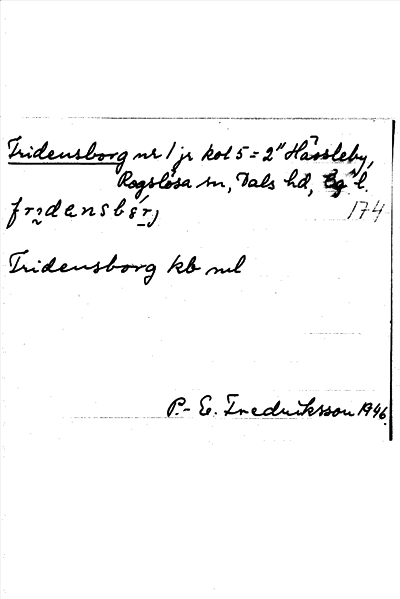 Fridensborg nr 1 jr kol 5 = 2" Hässleby,
Rogslösa sn, Dals hd, Ög l.
174
Fridensborg kb ml
P.-E. Fredriksson 1946.